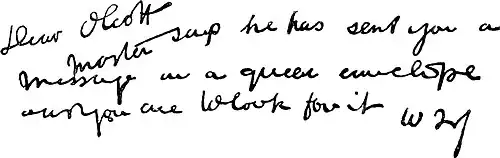 Dear Olcott
Master says he has sent you a
message in a queer envelope
and you are to look for it W Q J